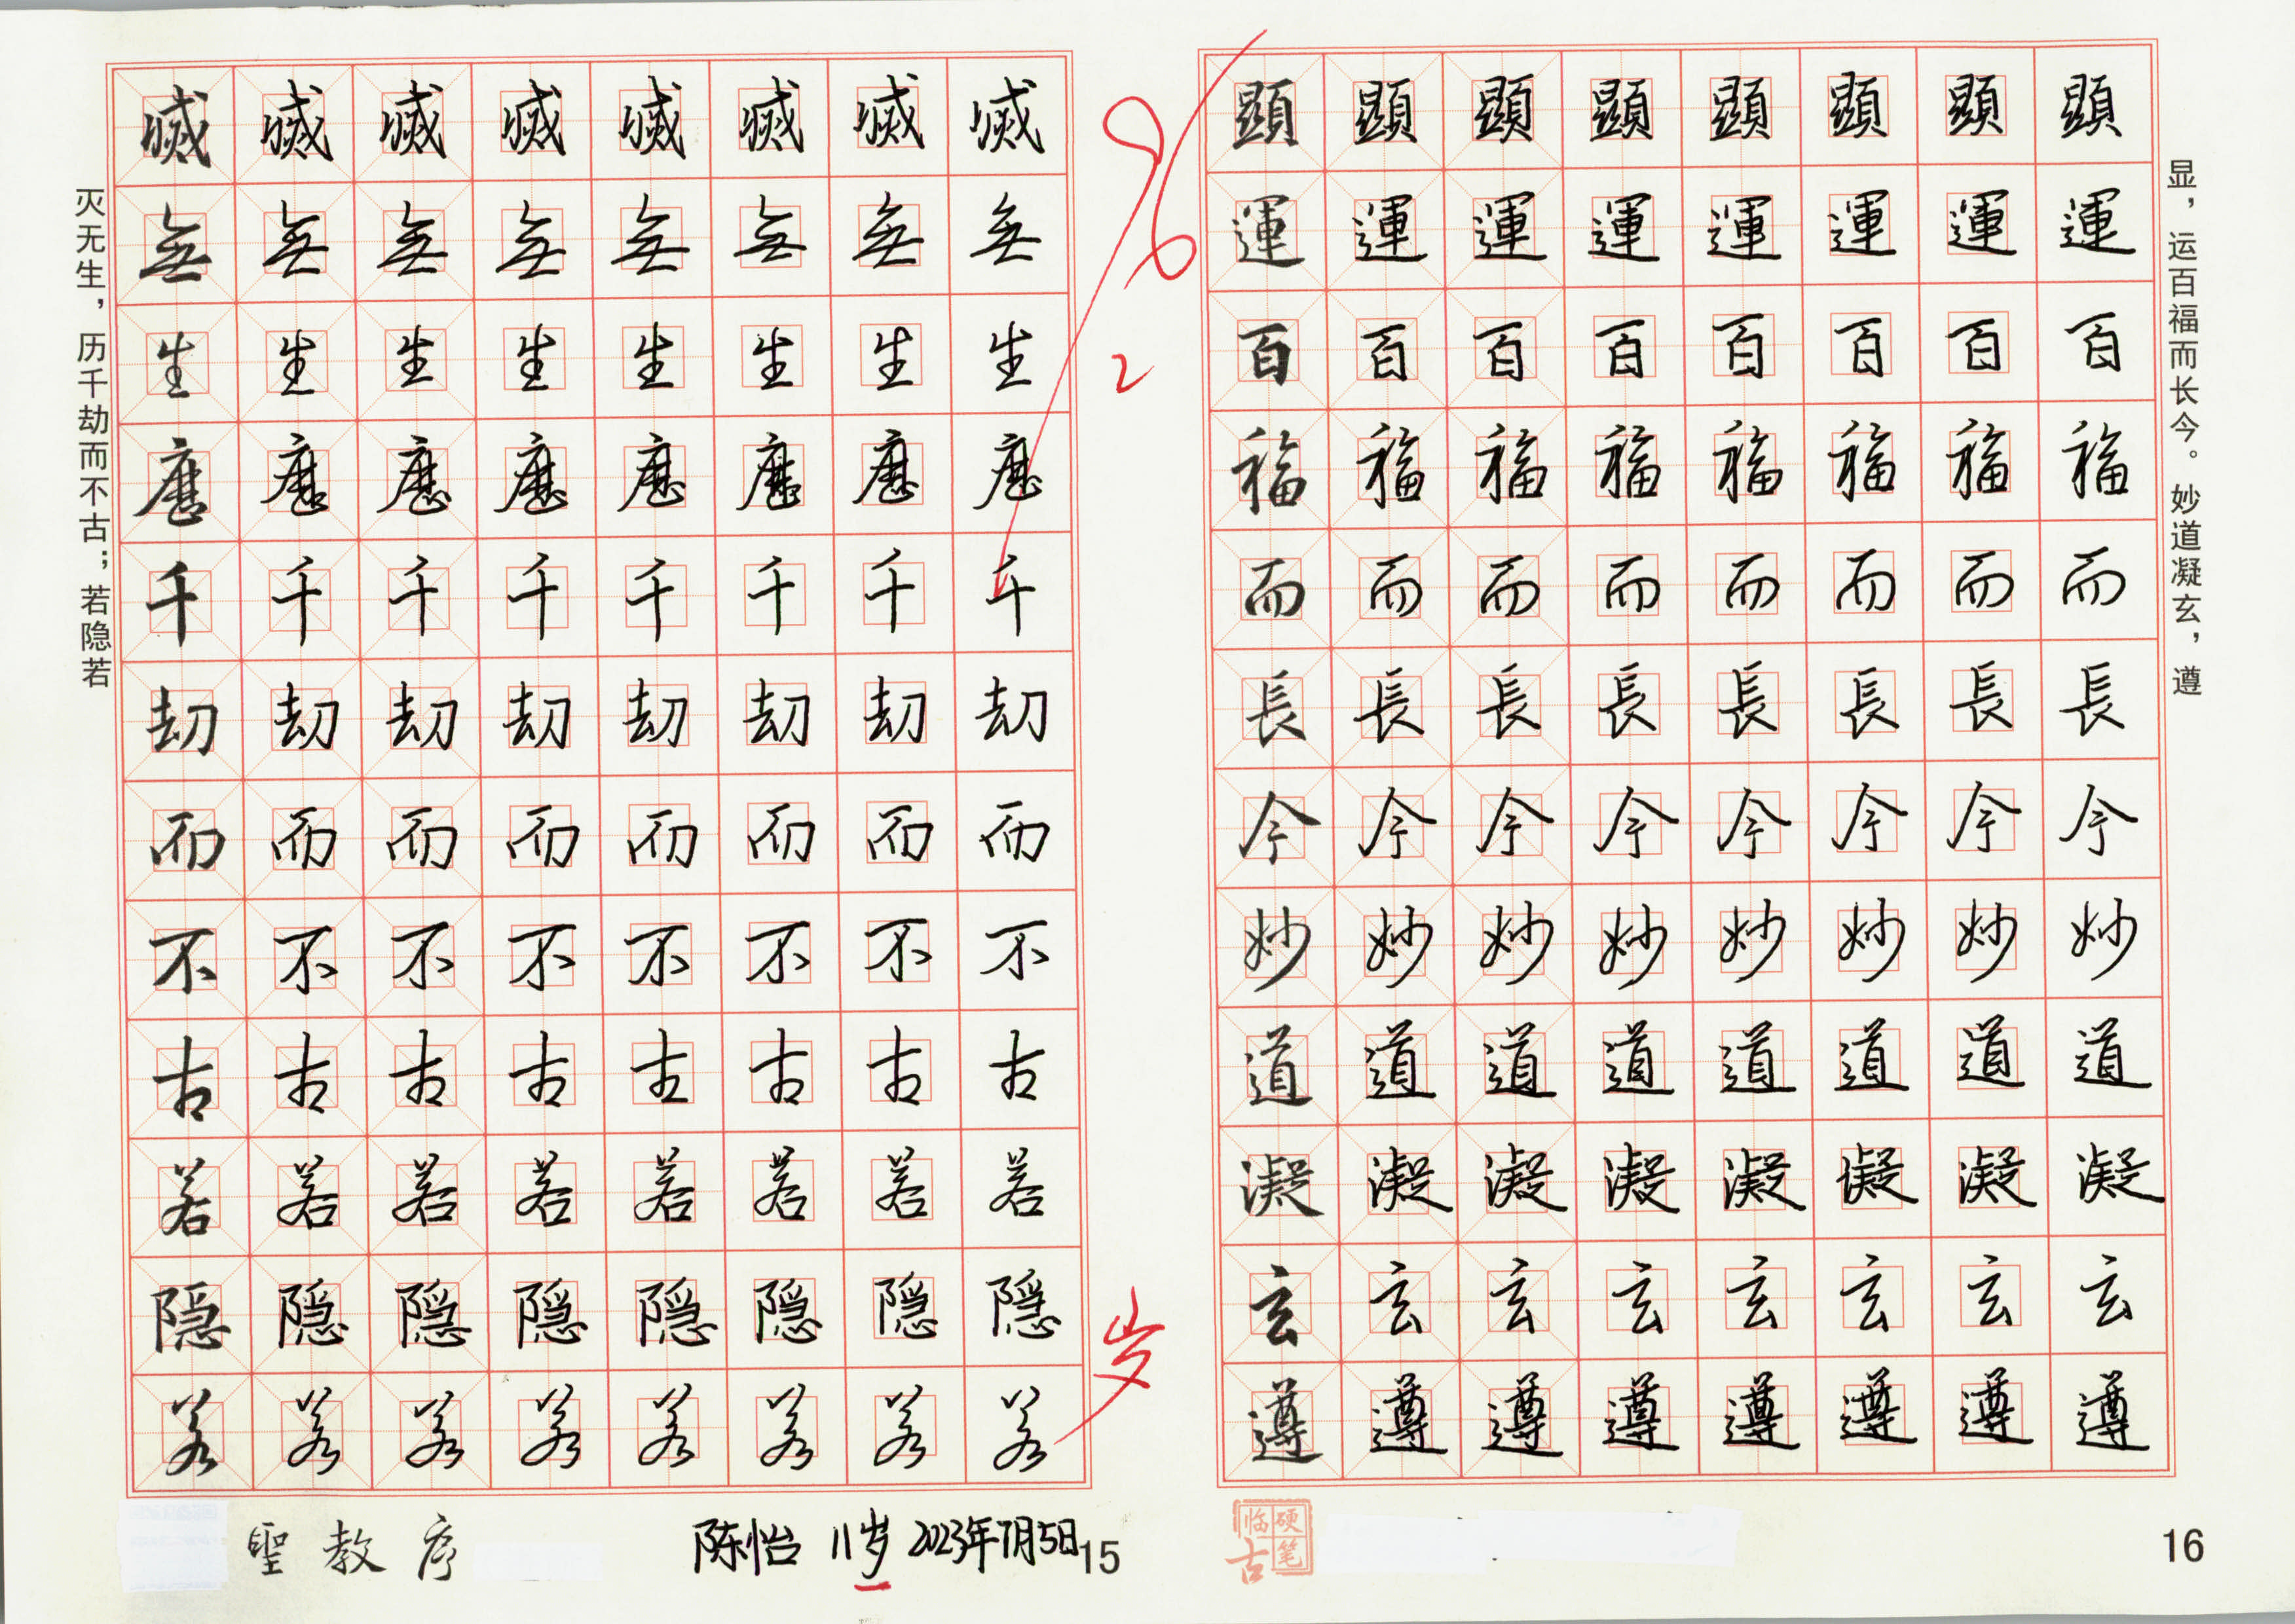 灭无生，历千劫而不古；若隐若
滅滅滅滅滅滅滅滅
無無無無無無無無
生生生生生生生生
歷歷歷歷歷歷歷歷
千千千千千千千千
劫劫劫劫劫劫劫劫
而而而而而而而而
不不不不不不不不
古古古古古古古古
若若若若若若若若
隐隐隐隐隐隐隐隐
若若若若若若若若
聖教序
陈怡 11岁 2023年7月5日
15
96
2
岁
顯顯顯顯顯顯顯顯
運運運運運運運運
百百百百百百百百
福福福福福福福福
而而而而而而而而
長長長長長長長長
今今今今今今今今
妙妙妙妙妙妙妙妙
道道道道道道道道
凝凝凝凝凝凝凝凝
玄玄玄玄玄玄玄玄
遵遵遵遵遵遵遵遵
显，运百福而长今。妙道凝玄，遵
硬笔临古
16